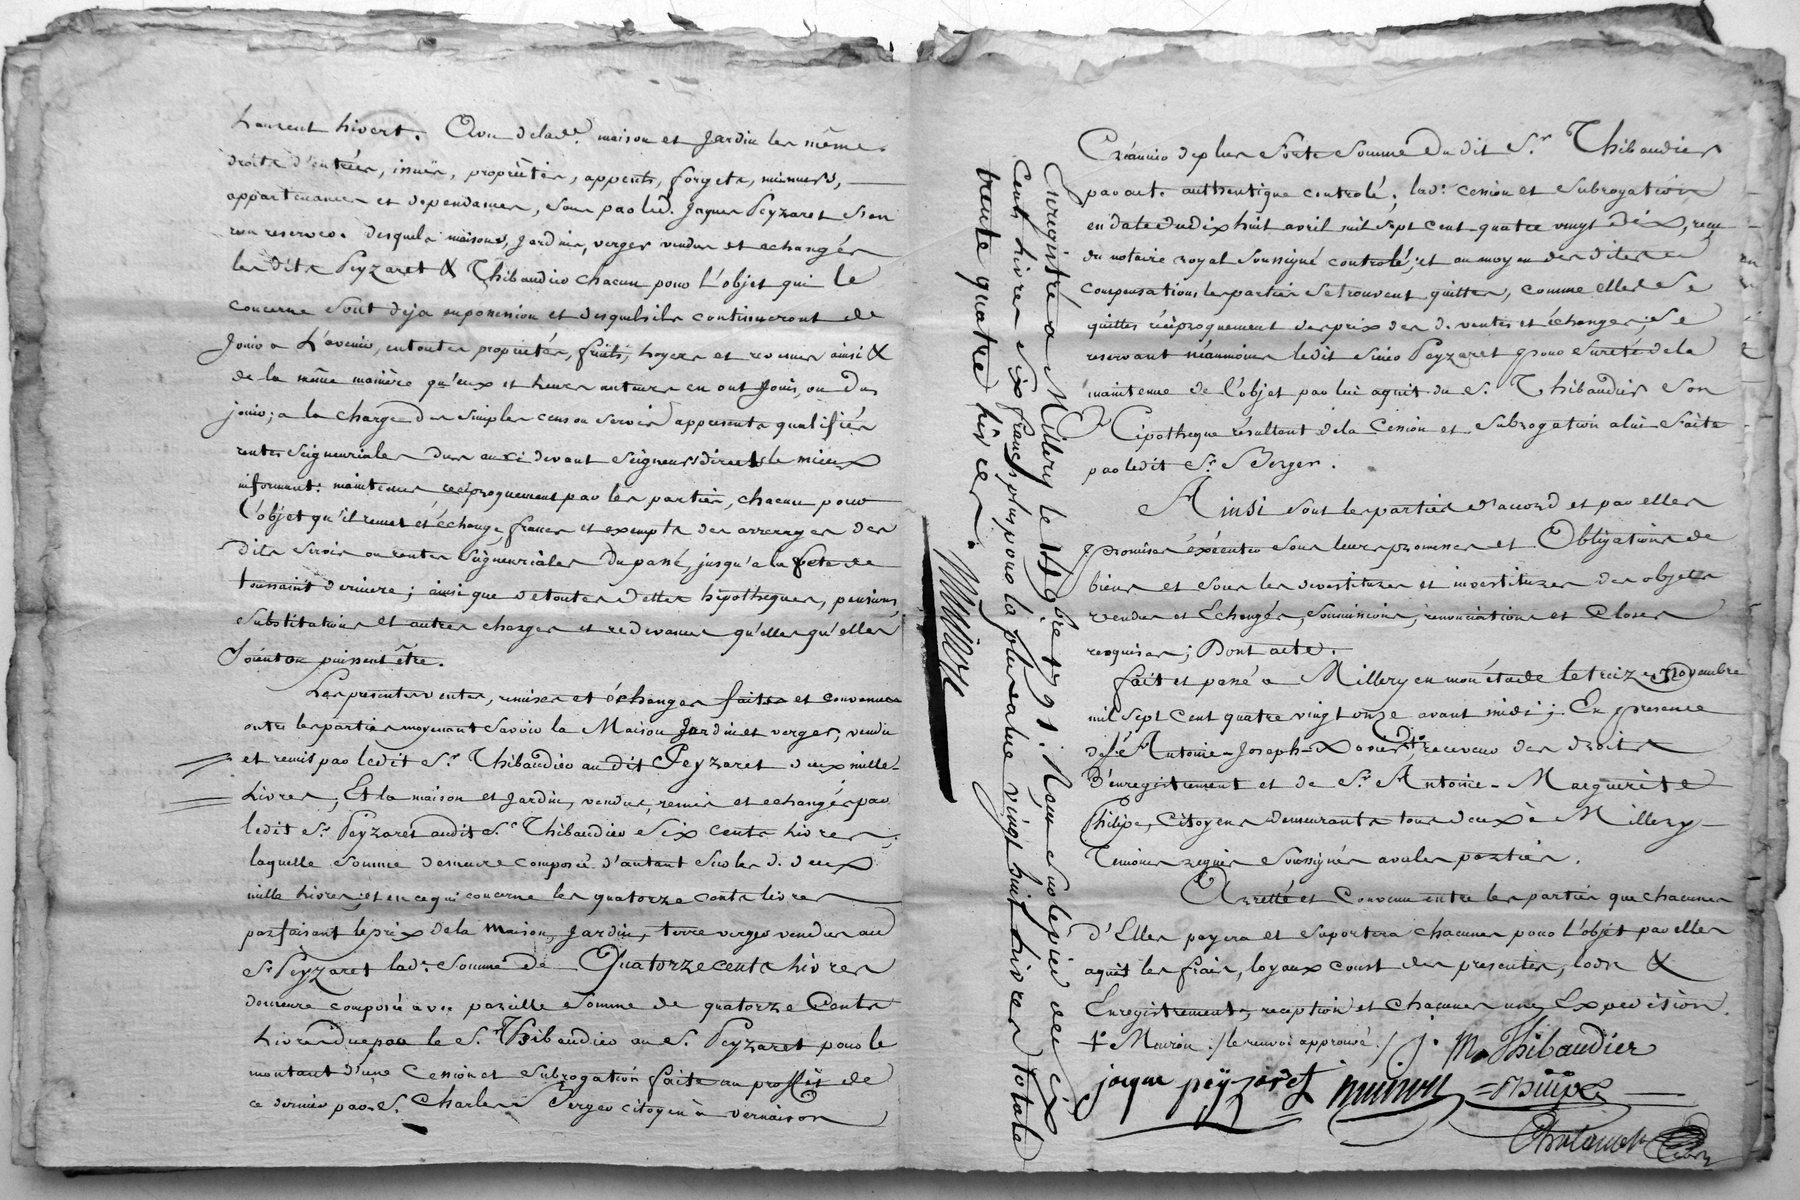 Laurent hivert. Avec delade. maison et Jardin les même
droits d'entrées, issuës, propriètés, appents, forgets, minuis,
appartenances et dependances, sans par led. Jaques Peyzaret s'en
rien reserver. desquels maisons, Jardins, verger vendus et echangés
lesdits Peyzaret & Thibaudier chacun pour L'objet qui le
concerne sont deja enpossession et desquels ils continueront de
Jouir a L'avenir, entoutes propriétés, fruits, Loyers et revenus ainsi &
de la même manière qu'eux et leurs auteurs en ont Jouis, ou Du
jouir; a la charge des simples cens ou servis appresents qualifiés
rentes seigneuriales dues auxci devant seigneurs directs le mieux
informant. maintenus reciproquement par les parties, chacun pour
L'objet qu'il remet et échange, francs et exempts des arrerages des
dits servis ou rentes seigneuriales du passé, jusqu'a la fete de
toussaint derniere; ainsi que de toutes dettes hipotheques, pensions
substitutions et autres charges et redevances qu'elles qu'elles
soient ou puissent être.
Les presentes ventes, remises et échanges faites et convenues
entre les parties moyenant savoir la Maison Jardin et verger, vendu
et remis par ledit Sr. Thibaudier au dit Peyzaret deux mille
Livres; Et la maison et Jardin, vendus, remis et echangés par
ledit Sr. Peyzaret audit Sr. Thibaudier Six cents Livres,
laquelle somme demeure composée d'autant sur les d. deux
mille Livres; et en ce qui concerne les quatorze cents livres
parfaisant le prix de la maison, Jardin, terre verger vendus au
Sr Peyzaret lad. somme de Quatorze cents Livres
demeure composé avec pareille somme de quatorze Cents
Livres due par le Sr. Thibaudier au Sr. Peyzaret pour le
montant d'une Cession et subrogation faite au proffit de
ce dernier par Sr. Charles Berger citoyen à vernaison
Enregistré a Millery le 14 9bre 1791. Reçu sur le pied de six
Cents Livres six francs plus pour la plus value vingt huit Livres totale
trente quatre Livres.
Muiron
Créancier de plus forte somme Du dit Sr. Thibaudier
par act. authentique controlé; lad. cession et subrogation
en date du dix huit avril mil sept cent quatre vingt dix, reçu
du notaire royal soussigné controlé; et au moyen des dites
compensations les parties se trouvent quittes, comme elles se
quittes réciproquement des prix des d. ventes et échanges; se
reservant néanmoins ledit sieur Peyzaret pour sureté de la
maintenue de l'objet par lui aquit du Sr. Thibaudier son
Hipotheque résultant de la Cession et subrogation a lui faite
par ledit Sr. Berger.
Ainsi sont les parties d'accord et par elles
promises éxécuter sous leurs promesses et Obligations de
biens et sous les devestitures et investitures des objets
vendus et Echangés, soumissions, renonciations et Closes
requises; Dont acte.
fait et passé a Millery en mon étude le treize novembre
mil sept cent quatre vingt onze avant midi; En presence
de Sr Antoine-Joseph receveur des droits
D'enregistrement et de Sr. Antoine-Marguerite
Philipe, Citoyens demeurants tous deux à Millery
Temoins requis soussignés avec les parties.
Arretté et Convenu entre les parties que chacunes
d'Elles payera et suportera chacunes pour L'objet par elles
aquit les frais, loyaux coust des presentes, lods &
Enregistrements, reception et chacunes une Expedition.
+ Muiron ./ le renvoi approuvé./. J. M. Thibaudier
jaque peyzaret muiron Philipe